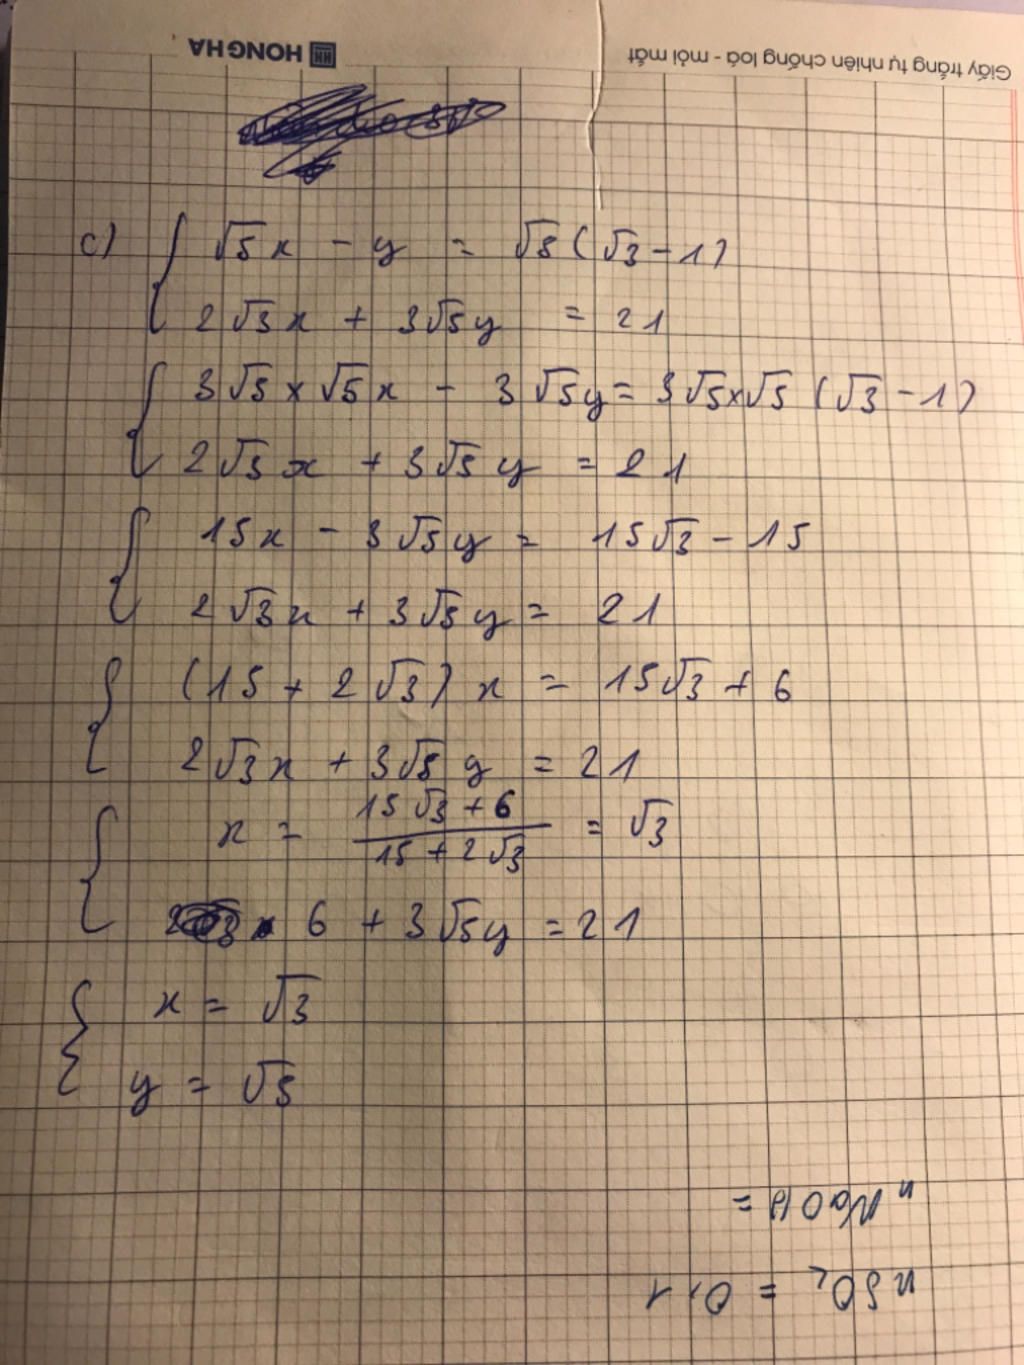 Giấy trắng tự nhiên chống loá - mỏi mắt
HONG HA
c) √5x - y = √5(√3-1)
2√3x + 3√5y = 21
3√5×√5x - 3√5y = 3√5×√5(√3-1)
2√3x + 3√5y = 21
15x - 3√5y = 15√3 - 15
2√3x + 3√5y = 21
(15 + 2√3)x = 15√3 + 6
2√3x + 3√5y = 21
x = (15√3 + 6)/(15 + 2√3) = √3
6 + 3√5y = 21
x = √3
y = √5
n NaOH =
n SO₂ = 0,1